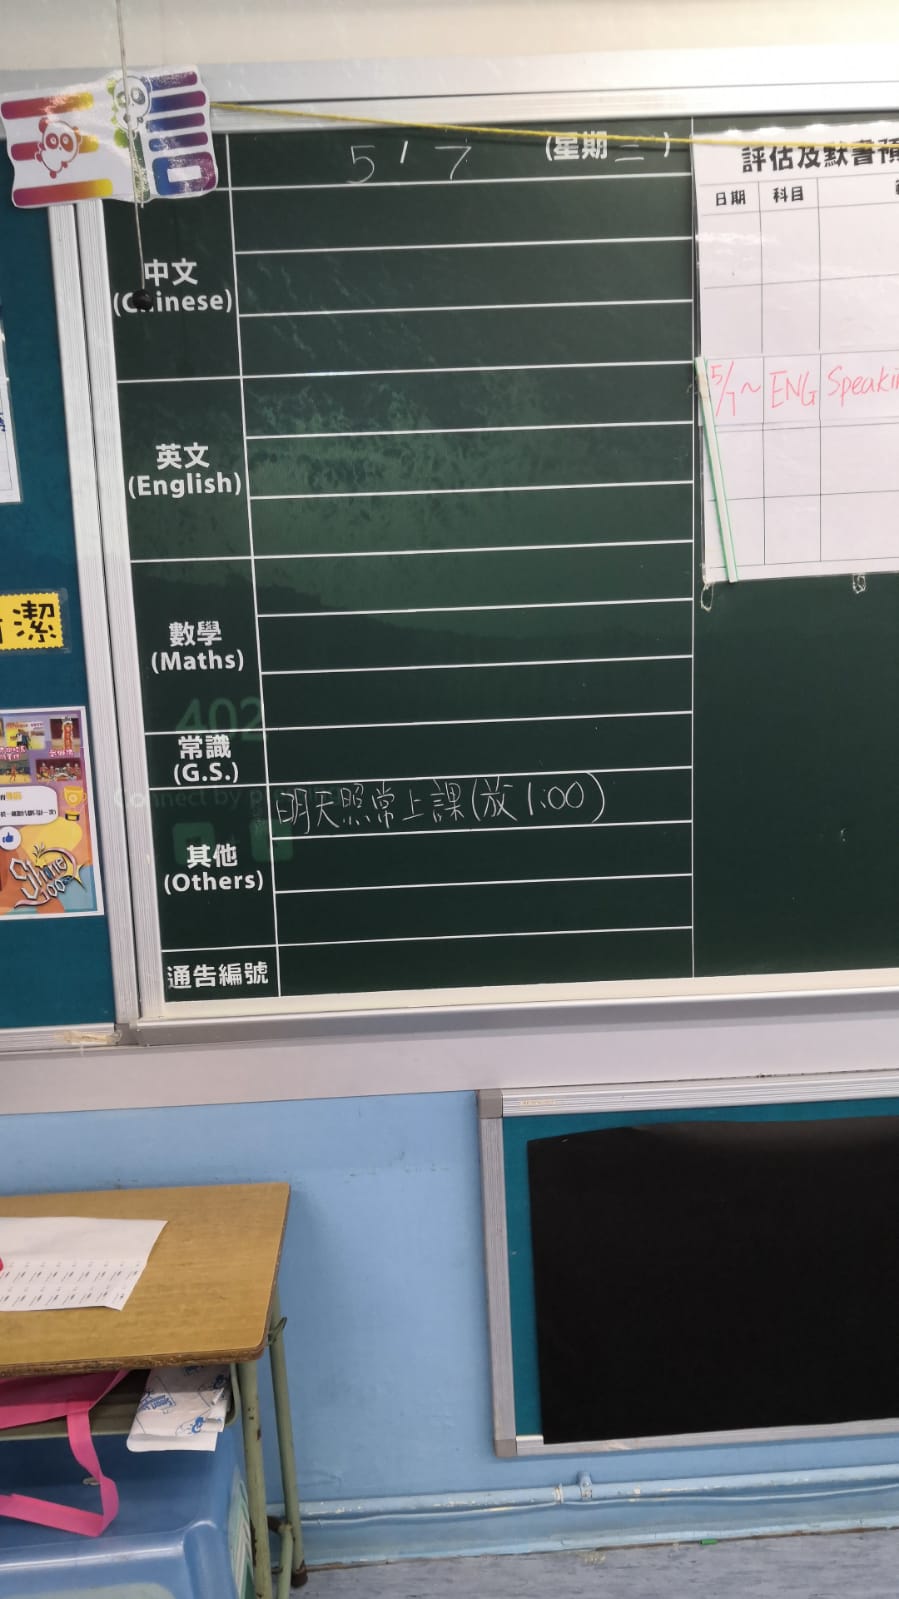 5 / 7 (星期 二 )
中文
(Chinese)
英文
(English)
數學
(Maths)
402
常識
(G.S.)
Connect by p
其他
(Others)
明天照常上課(放1:00)
通告編號
評估及默書預
日期 科目
5/7~ ENG Speaki
潔
Shine
100